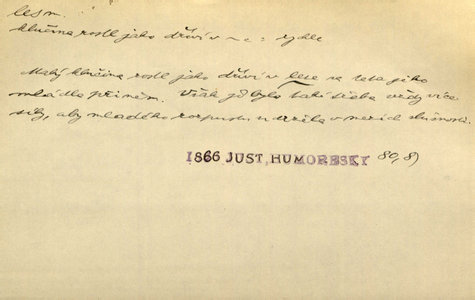 les m.
klučina rostl jako dříví v ~ = rychle
Malý klučina rostl jako dříví v lese na teta jeho
mládla při něm. Však jí bylo také třeba vždy více
síly, aby mladého rozpustu udržela v mezích slušnosti.
1866 JUST, HUMORESKY 80, 81